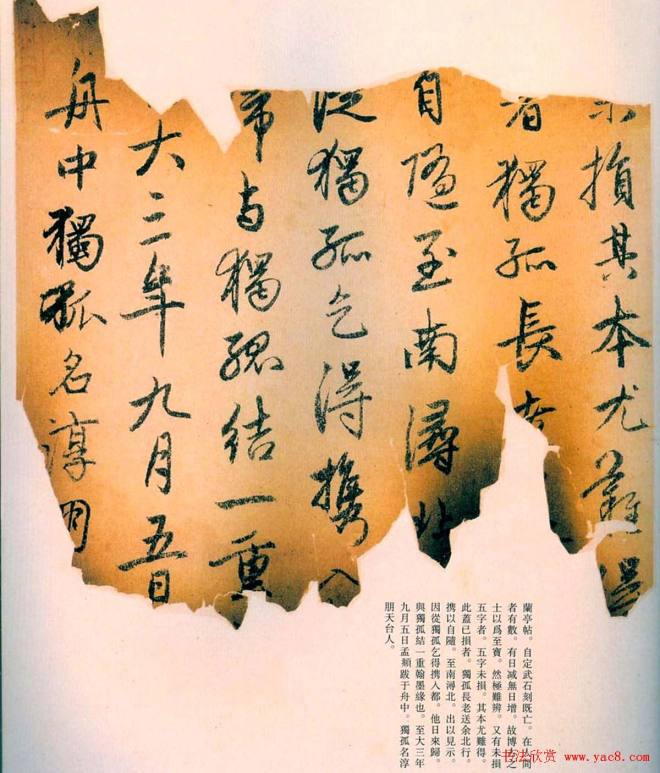 未損其本尤難得
者獨孤長
自隨至南潯北
從獨孤乞得携入
与獨孤結一重
大三年九月五日
舟中獨孤名淳朋
蘭亭帖。自定武石刻既亡。在人間
者有數。有日減無日增。故博古之
士以爲至寶。然極難辨。又有未損
五字者。五字未損。其本尤難得。
此蓋已損者。獨孤長老送余北行。
携以自隨。至南潯北。出以見示。
因從獨孤乞得携入都。他日來歸。
與獨孤結一重翰墨緣也。至大三年
九月五日孟頫跋于舟中。獨孤名淳
朋天台人。
书法欣赏 www.yac8.com